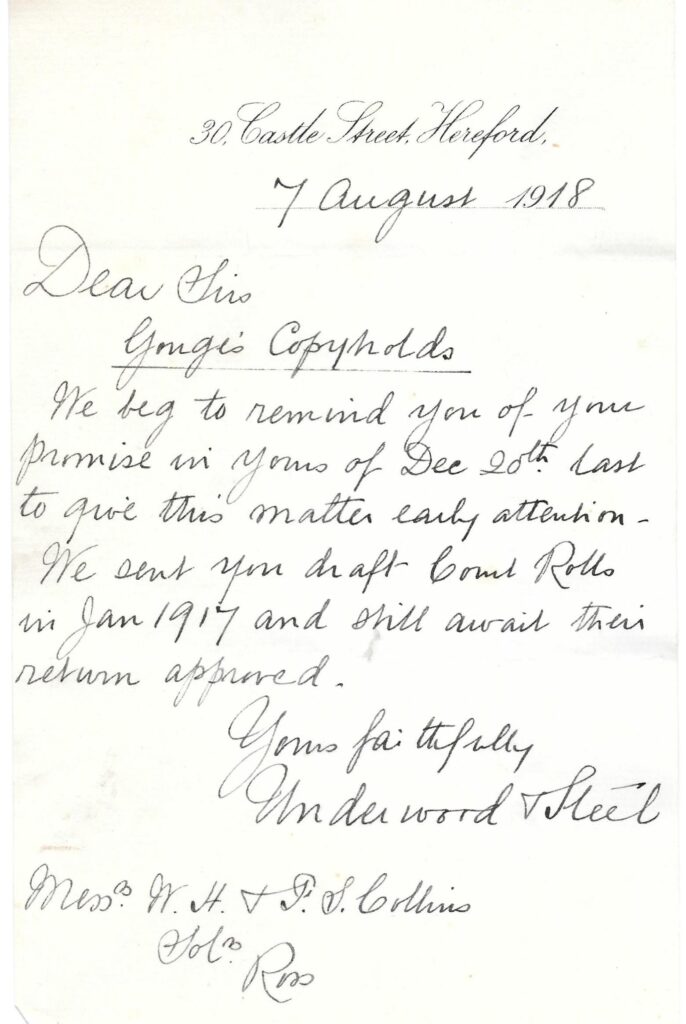 30, Castle Street, Hereford,
7 August 1918
Dear Sirs
Gonge's Copyholds
We beg to remind you of your
promise in yours of Dec 20th last
to give this matter early attention -
We sent you draft Court Rolls
in Jan 1917 and still await their
return approved.
Yours faithfully
Underwood & Steel
Messrs W. H. & F. S. Collins
Solrs
Ross